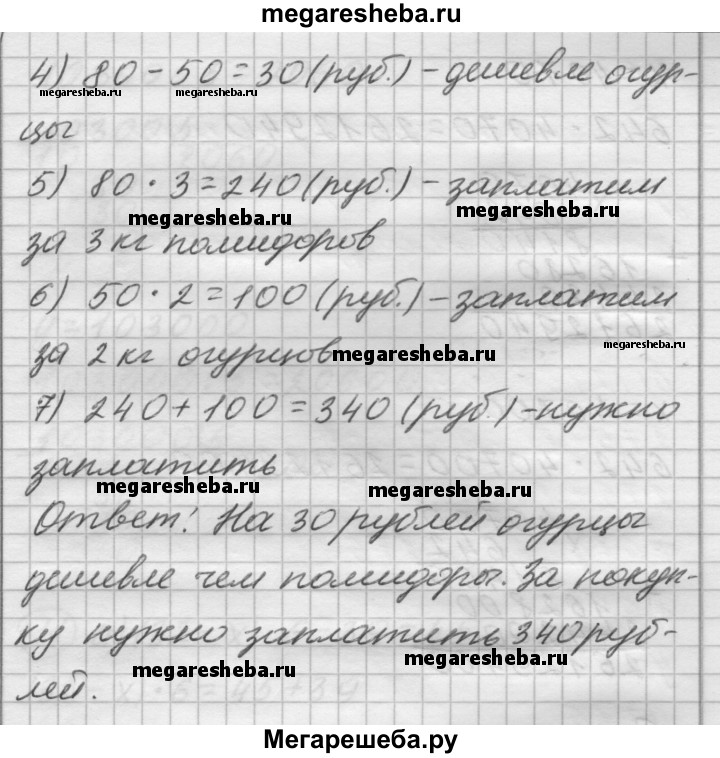 megaresheba.ru
4) 80 - 50 = 30 (руб.) - дешевле огур-
megaresheba.ru megaresheba.ru
цы
5) 80 · 3 = 240 (руб.) - заплатим
megaresheba.ru megaresheba.ru
за 3 кг помидоров
6) 50 · 2 = 100 (руб.) - заплатим
megaresheba.ru
за 2 кг огурцов
megaresheba.ru
7) 240 + 100 = 340 (руб.) - нужно
заплатить
megaresheba.ru megaresheba.ru
Ответ: На 30 рублей огурцы
дешевле чем помидоры. За покуп-
ку нужно заплатить 340 руб-
megaresheba.ru megaresheba.ru
лей.
Мегарешеба.ру